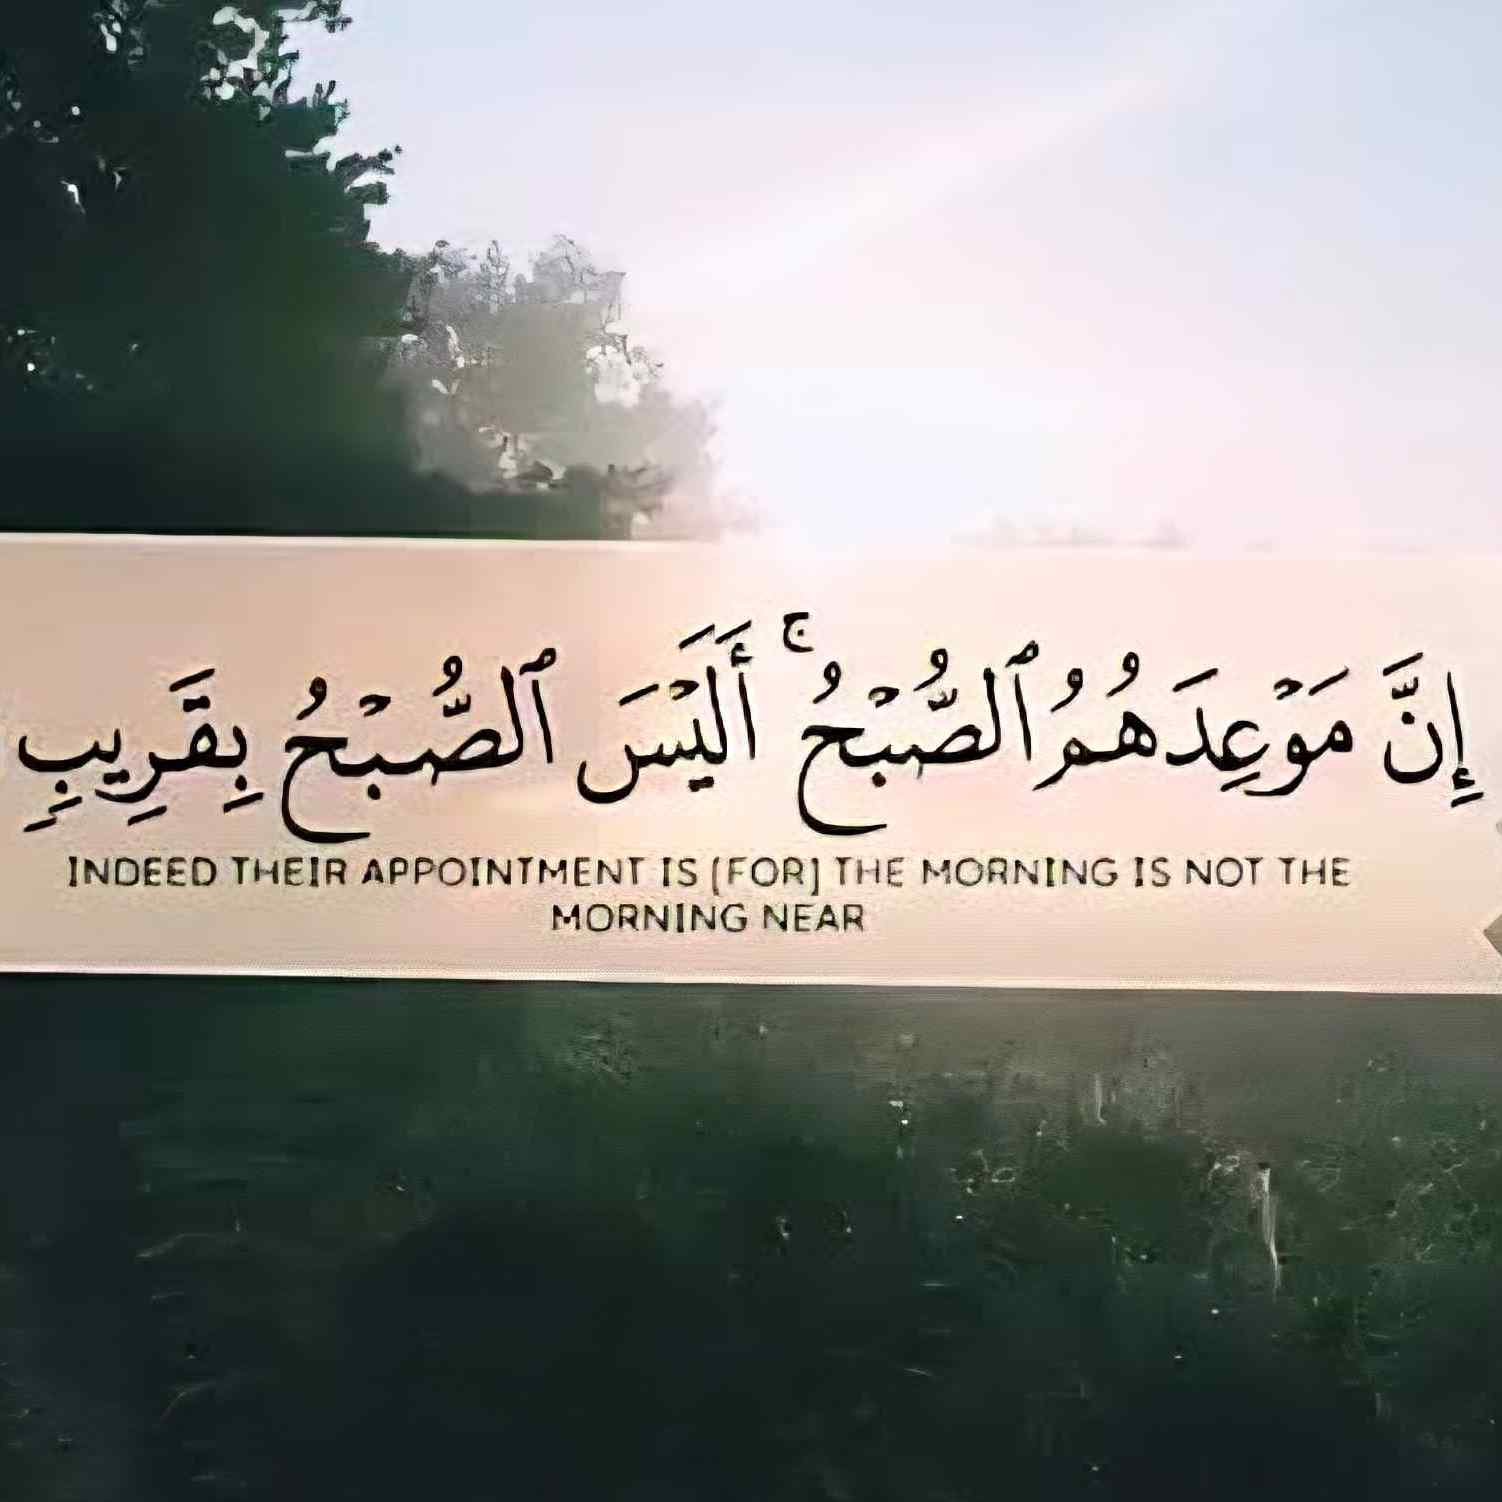 إِنَّ مَوْعِدَهُمُ ٱلصُّبْحُ ۚ أَلَيْسَ ٱلصُّبْحُ بِقَرِيبٍ
INDEED THEIR APPOINTMENT IS [FOR] THE MORNING IS NOT THE
MORNING NEAR